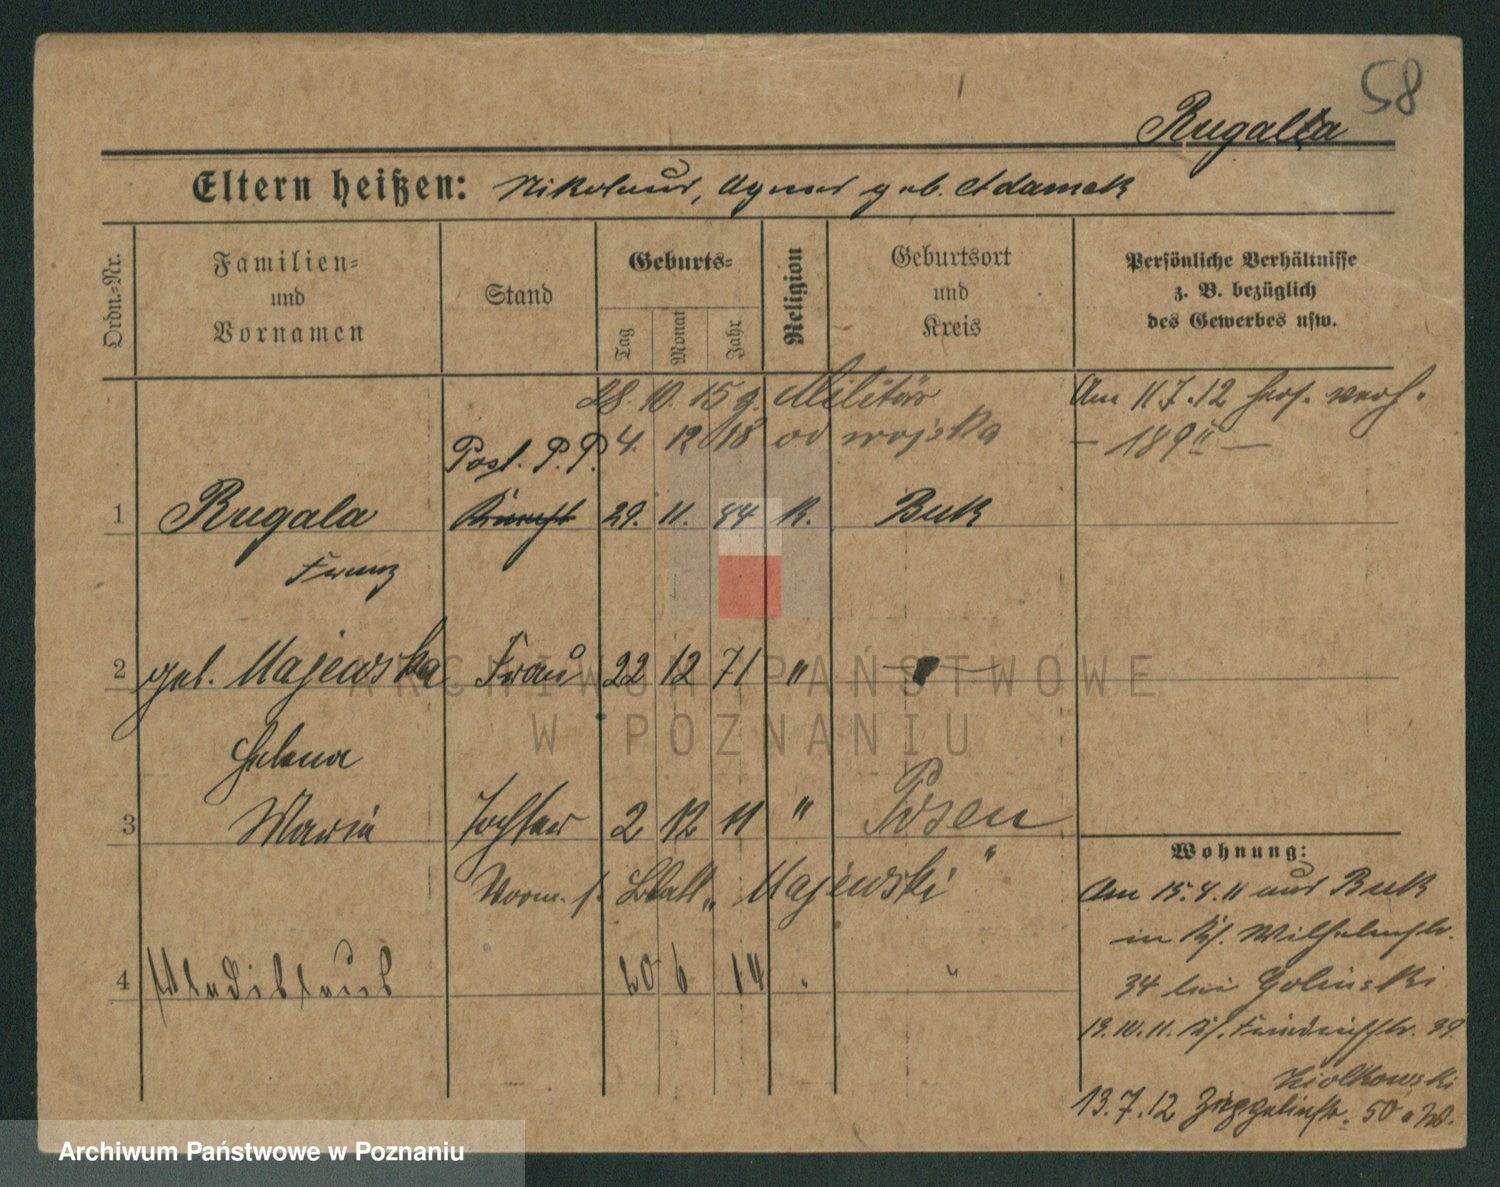 58
Rugala
Eltern heißen: Nikolaus, Agnes geb. Adamek
Ordn.=Nr.
Familien=
und
Vornamen
Stand
Geburts=
Tag
Monat
Jahr
Religion
Geburtsort
und
Kreis
Persönliche Verhältnisse
z. B. bezüglich
des Gewerbes usw.
28. 10. 15 z. Militär
4. 12 18 od wojska
Am 11.7.12 verh.
Post. P. P.
1 Rugala Knecht 29. 11. 84 K. Buk
Franz
2 geb. Majewska Frau 22 12 71 "
Helena
3 Maria Tochter 2 12 11 " Posen
Vorm. s. Blatt „Majewski"
4 Wladislaus 20 6 14 " "
Wohnung:
Am 15.4.11 aus Buk
in Wilhelmstr.
34 bei Golinski
19.10.11. Friedrichstr. 39
Ziolkowski
13.7.12 50
ARCHIWUM PAŃSTWOWE
W POZNANIU
Archiwum Państwowe w Poznaniu